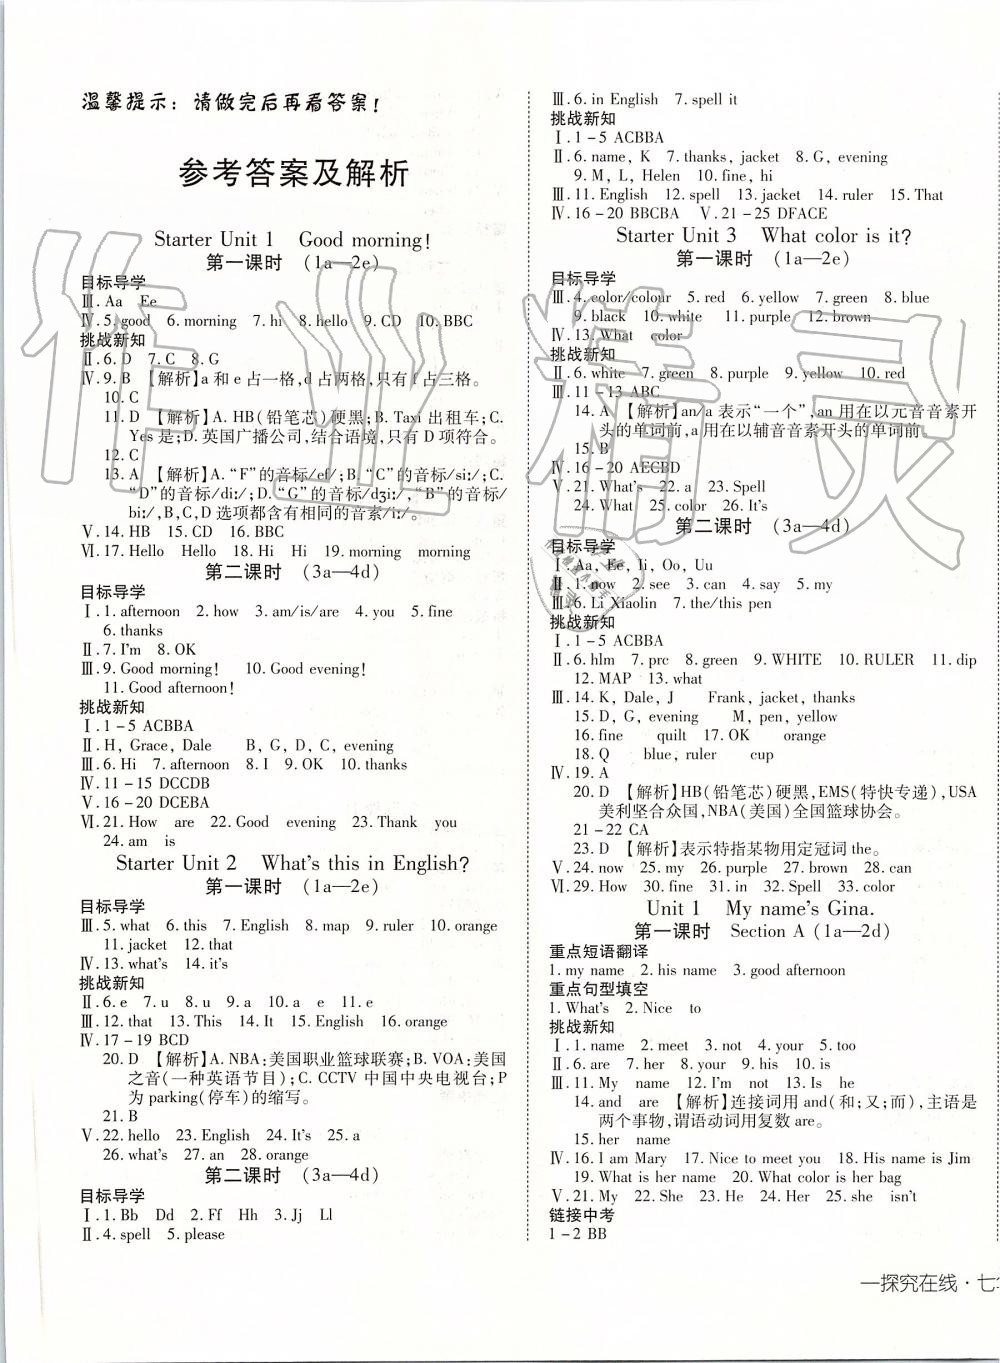 温馨提示：请做完后再看答案！
参考答案及解析
Starter Unit 1　Good morning!
第一课时　(1a—2e)
目标导学
Ⅲ.Aa　Ee
Ⅳ.5. good　6. morning　7. hi　8. hello　9. CD　10. BBC
挑战新知
Ⅱ.6. D　7. C　8. G
Ⅳ.9. B　【解析】a 和 e 占一格,d 占两格,只有 f 占三格。
10. C
11. D　【解析】A. HB(铅笔芯)硬黑;B. Taxi 出租车;C.
Yes 是;D. 英国广播公司,结合语境,只有 D 项符合。
12. C
13. A　【解析】A. “F”的音标/ef/;B. “C”的音标/siː/;C.
“D”的音标/diː/;D. “G”的音标/dʒiː/, “B”的音标/
biː/,B,C,D 选项都含有相同的音素/iː/。
Ⅴ.14. HB　15. CD　16. BBC
Ⅵ.17. Hello　Hello　18. Hi　Hi　19. morning　morning
第二课时　(3a—4d)
目标导学
Ⅰ.1. afternoon　2. how　3. am/is/are　4. you　5. fine
6. thanks
Ⅱ.7. I'm　8. OK
Ⅲ.9. Good morning!　10. Good evening!
11. Good afternoon!
挑战新知
Ⅰ.1－5 ACBBA
Ⅱ.H, Grace, Dale　B, G, D, C, evening
Ⅲ.6. Hi　7. afternoon　8. I　9. OK　10. thanks
Ⅳ.11－15 DCCDB
Ⅴ.16－20 DCEBA
Ⅵ.21. How　are　22. Good　evening　23. Thank　you
24. am　is
Starter Unit 2　What's this in English?
第一课时　(1a—2e)
目标导学
Ⅲ.5. what　6. this　7. English　8. map　9. ruler　10. orange
11. jacket　12. that
Ⅳ.13. what's　14. it's
挑战新知
Ⅱ.6. e　7. u　8. u　9. a　10. a　e　11. e
Ⅲ.12. that　13. This　14. It　15. English　16. orange
Ⅳ.17－19 BCD
20. D　【解析】A. NBA:美国职业篮球联赛;B. VOA:美国
之音(一种英语节目);C. CCTV 中国中央电视台;P
为 parking(停车)的缩写。
21. B
Ⅴ.22. hello　23. English　24. It's　25. a
26. what's　27. an　28. orange
第二课时　(3a—4d)
目标导学
Ⅰ.1. Bb　Dd　2. Ff　Hh　3. Jj　Ll
Ⅱ.4. spell　5. please
Ⅲ.6. in English　7. spell it
挑战新知
Ⅰ.1－5 ACBBA
Ⅱ.6. name, K　7. thanks, jacket　8. G, evening
9. M, L, Helen　10. fine, hi
Ⅲ.11. English　12. spell　13. jacket　14. ruler　15. That
Ⅳ.16－20 BBCBA　Ⅴ.21－25 DFACE
Starter Unit 3　What color is it?
第一课时　(1a—2e)
目标导学
Ⅲ.4. color/colour　5. red　6. yellow　7. green　8. blue
9. black　10. white　11. purple　12. brown
Ⅳ.13. What　color
挑战新知
Ⅱ.6. white　7. green　8. purple　9. yellow　10. red
Ⅲ.11－13 ABC
14. A　【解析】an/a 表示“一个”,an 用在以元音音素开
头的单词前,a 用在以辅音音素开头的单词前。
15. B
Ⅳ.16－20 AECBD
Ⅴ.21. What's　22. a　23. Spell
24. What　25. color　26. It's
第二课时　(3a—4d)
目标导学
Ⅰ.Aa, Ee, Ii, Oo, Uu
Ⅱ.1. now　2. see　3. can　4. say　5. my
Ⅲ.6. Li Xiaolin　7. the/this pen
挑战新知
Ⅰ.1－5 ACBBA
Ⅱ.6. hlm　7. prc　8. green　9. WHITE　10. RULER　11. dip
12. MAP　13. what
Ⅲ.14. K, Dale, J　Frank, jacket, thanks
15. D, G, evening　M, pen, yellow
16. fine　quilt　17. OK　orange
18. Q　blue, ruler　cup
Ⅳ.19. A
20. D　【解析】HB(铅笔芯)硬黑,EMS(特快专递),USA
美利坚合众国,NBA(美国)全国篮球协会。
21－22 CA
23. D　【解析】表示特指某物用定冠词 the。
Ⅴ.24. now　25. my　26. purple　27. brown　28. can
Ⅵ.29. How　30. fine　31. and　32. Spell　33. color
Unit 1　My name's Gina.
第一课时　Section A (1a—2d)
重点短语翻译
1. my name　2. his name　3. good afternoon
重点句型填空
1. What's　2. Nice　to
挑战新知
Ⅰ.1. name　2. meet　3. not　4. your　5. too
Ⅱ.6. are　7. her　8. your　9. his　10. is
Ⅲ.11. My　name　12. I'm　not　13. Is　he
14. and　are　【解析】连接词用 and(和;又;而),主语是
两个事物,谓语动词用复数 are。
15. her　name
Ⅳ.16. I am Mary　17. Nice to meet you　18. His name is Jim
19. What is her name　20. What color is her bag
Ⅴ.21. My　22. She　23. He　24. Her　25. she　isn't
链接中考
1－2 BB
一探究在线·七
作业精灵